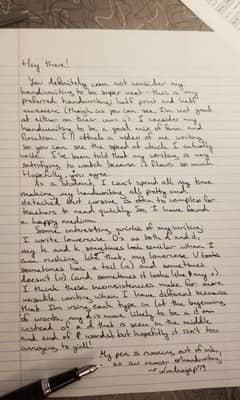 Hey there!
You definitely can not consider my
handwriting to be super neat - this is my
preferred handwriting; half print and half
cursive (though as you can see, I'm not good
at either on their own :)). I consider my
handwriting to be a good mix of form and
function. I'll attach a video of me writing
so you can see the speed at which I actually
write. I've been told that my writing is very
satisfying to watch because it flows so well.
Hopefully, you agree.
As a student, I can't spend all my time
making my handwriting all pretty and
detached. But cursive is often to complex for
teachers to read quickly. So, I have found
a happy medium.
Some interesting quirks of my writing:
I write lowercase D's as both d and
my h and k sometimes look similar when I
am nothing like that, my lowercase U looks
sometimes has a tail (u) and sometimes
doesn't (u) (and sometimes it looks like
I think these inconsistencies make for more
versatile writing when I have different scenarios
that I'm using each type in. At the beginning
of words, my d is more likely to be a
instead of a d that is seen in the middle
and end of words but hopefully it isn't too
annoying to y'all!
My pen is running out of ink,
so